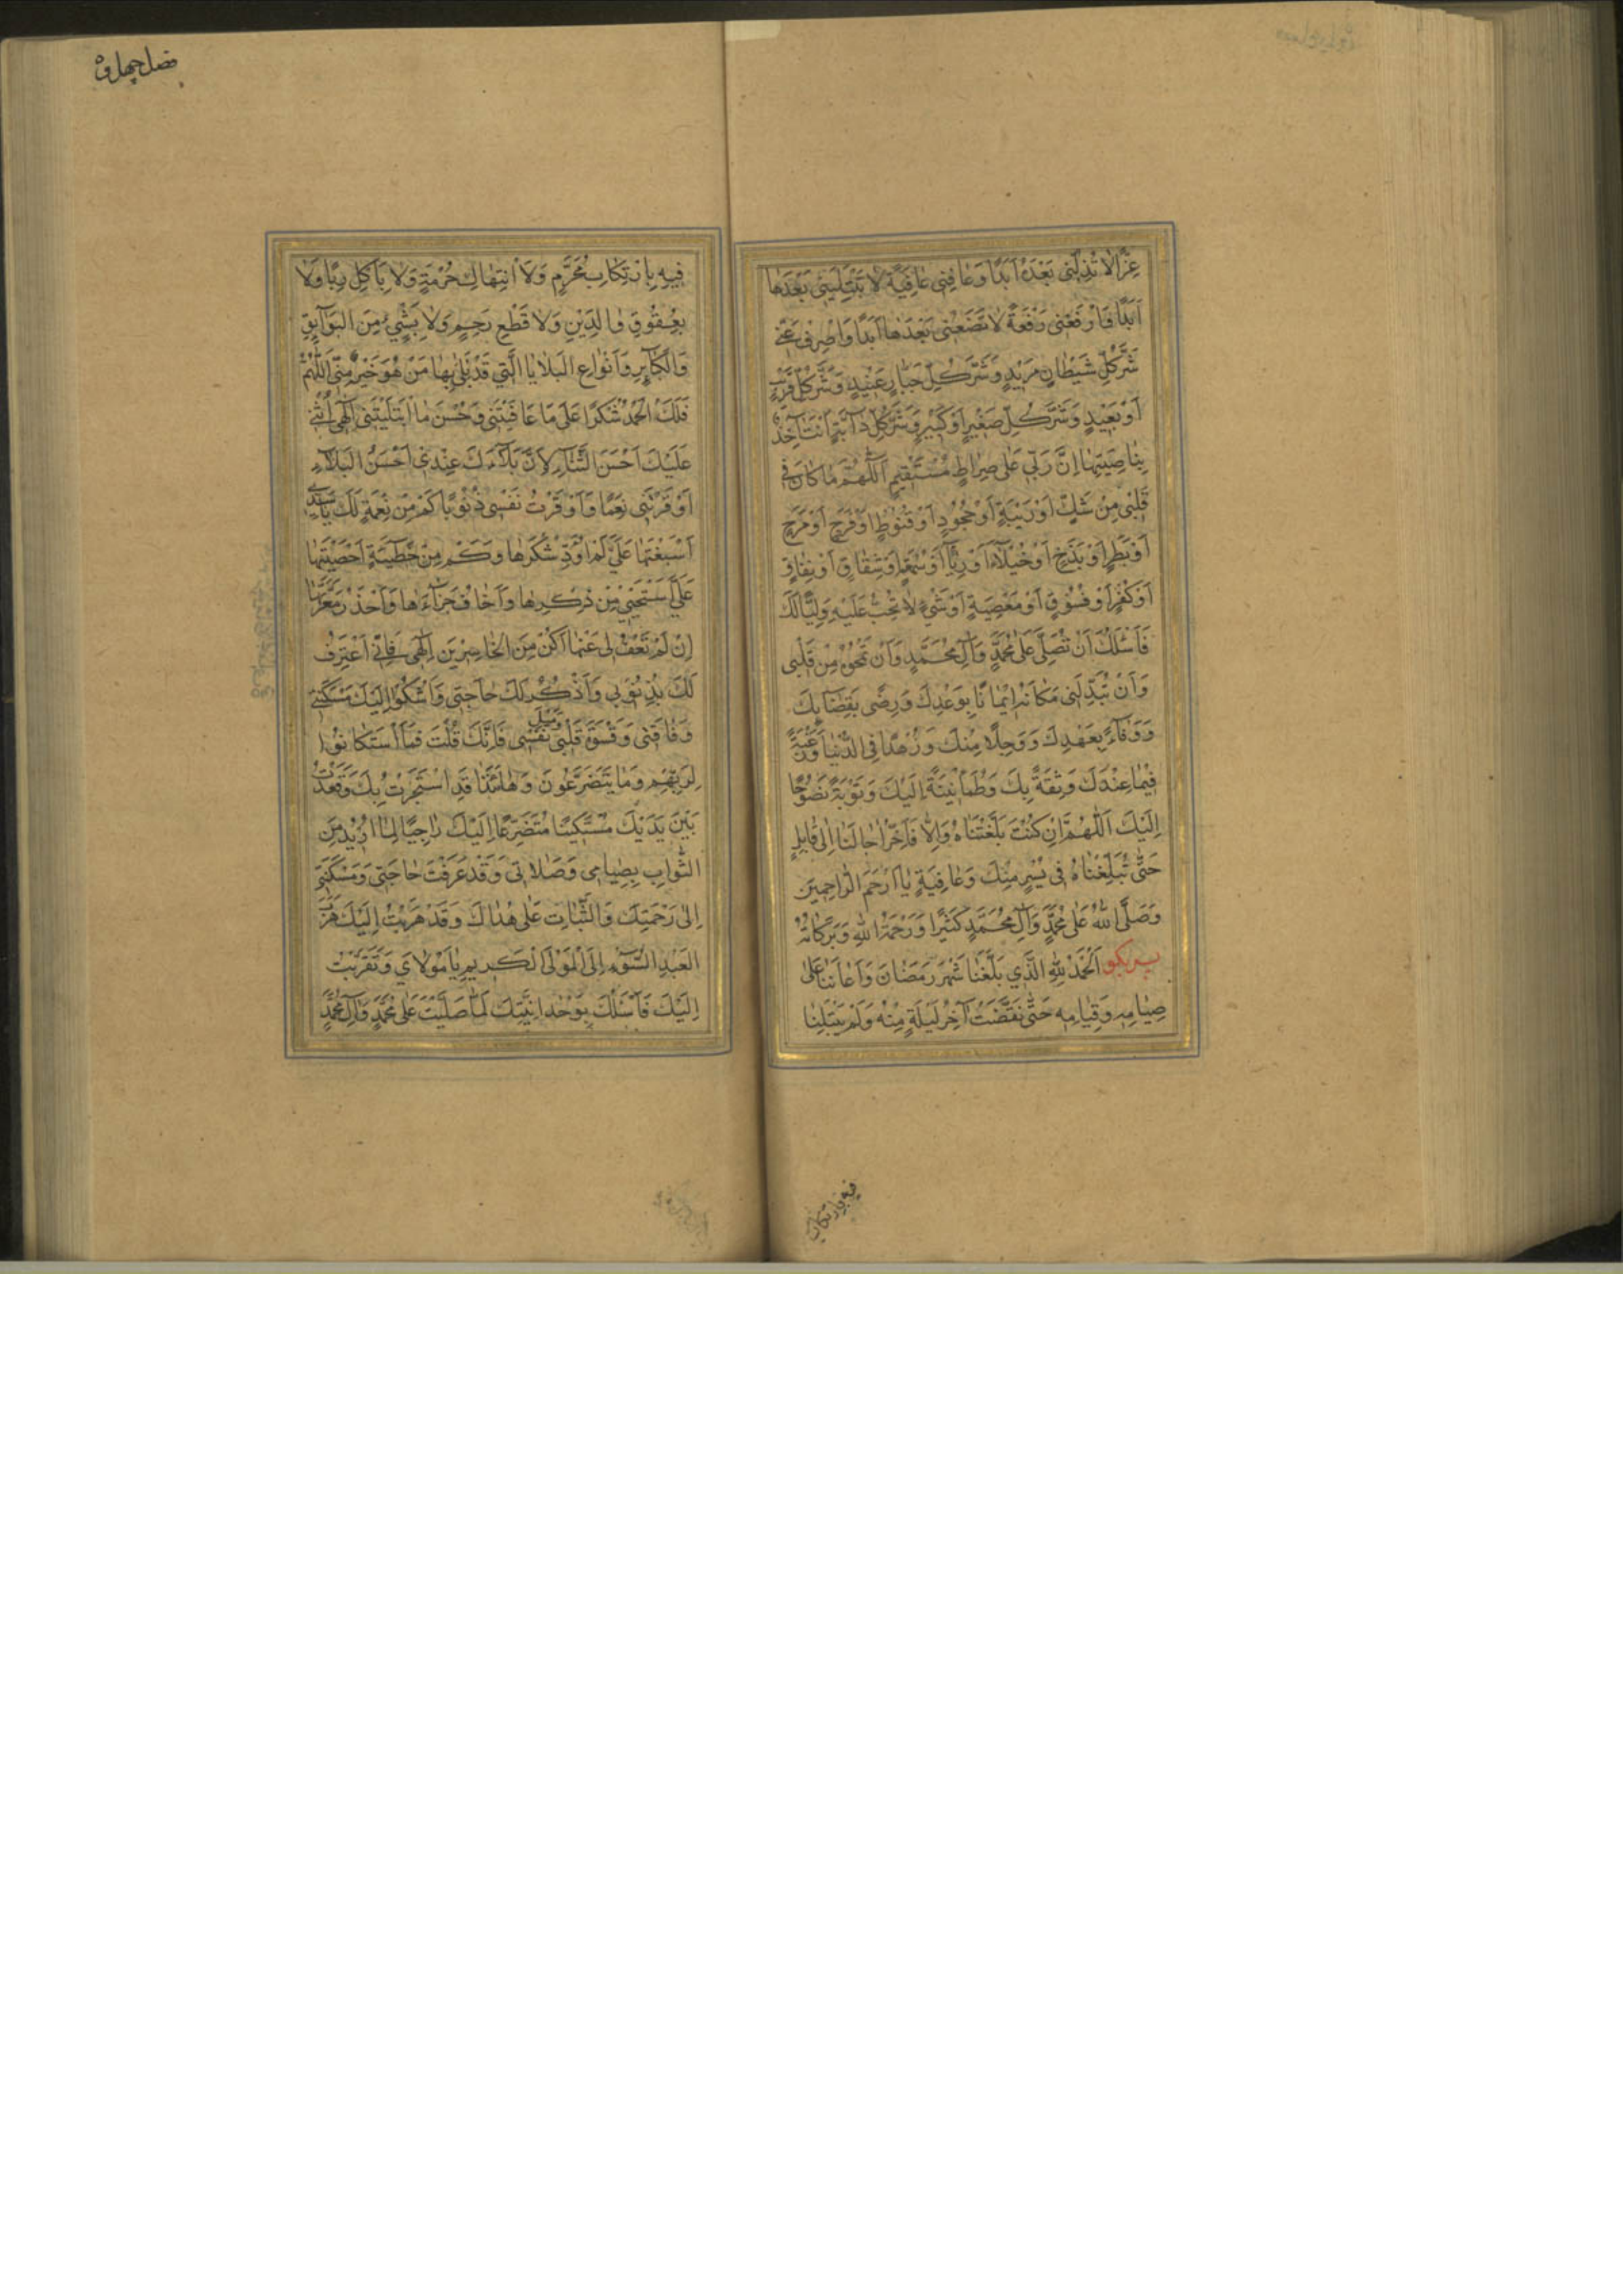 عِزًّا لَا تُذِلُّنِي بَعْدَهُ اَبَدًا وَعَافِنِي عَافِيَةً لَا تَبْتَلِيَنِي بَعْدَهَا
اَبَدًا وَارْفَعْنِي رِفْعَةً لَا تَضَعُنِي بَعْدَهَا اَبَدًا وَاصْرِفْ عَنِّي
شَرَّ كُلِّ شَيْطَانٍ مَرِيدٍ وَشَرَّ كُلِّ جَبَّارٍ عَنِيدٍ وَشَرَّ كُلِّ قَرِيبٍ
اَوْ بَعِيدٍ وَشَرَّ كُلِّ صَغِيرٍ اَوْ كَبِيرٍ وَشَرَّ كُلِّ دَآبَّةٍ اَنْتَ آخِذٌ
بِنَاصِيَتِهَا اِنَّ رَبِّي عَلَى صِرَاطٍ مُسْتَقِيمٍ اَللّٰهُمَّ مَا كَانَ فِي
قَلْبِي مِنْ شَكٍّ اَوْ رَيْبَةٍ اَوْ جُحُودٍ اَوْ قُنُوطٍ اَوْ فَرَحٍ اَوْ مَرَحٍ
اَوْ بَطَرٍ اَوْ بَذَخٍ اَوْ خُيَلَآءَ اَوْ رِيَآءٍ اَوْ سُمْعَةٍ اَوْ شِقَاقٍ اَوْ نِفَاقٍ
اَوْ كُفْرٍ اَوْ فُسُوقٍ اَوْ مَعْصِيَةٍ اَوْ شَيْءٍ لَا تُحِبُّ عَلَيْهِ وَلِيًّا لَكَ
فَاَسْئَلُكَ اَنْ تُصَلِّيَ عَلَى مُحَمَّدٍ وَآلِ مُحَمَّدٍ وَاَنْ تَمْحُوَهُ مِنْ قَلْبِي
وَاَنْ تُبَدِّلَنِي مَكَانَهُ اِيمَانًا بِوَعْدِكَ وَرِضًى بِقَضَائِكَ
وَوَفَآءً بِعَهْدِكَ وَوَجَلًا مِنْكَ وَزُهْدًا فِي الدُّنْيَا وَرَغْبَةً
فِيمَا عِنْدَكَ وَثِقَةً بِكَ وَطُمَأْنِينَةً اِلَيْكَ وَتَوْبَةً نَصُوحًا
اِلَيْكَ اَللّٰهُمَّ اِنْ كُنْتَ بَلَّغْتَنَاهُ وَاِلَّا فَاَخِّرْ آجَالَنَا اِلَى قَابِلٍ
حَتَّى تُبَلِّغَنَاهُ فِي يُسْرٍ مِنْكَ وَعَافِيَةٍ يَا اَرْحَمَ الرَّاحِمِينَ
وَصَلَّى اللّٰهُ عَلَى مُحَمَّدٍ وَآلِ مُحَمَّدٍ كَثِيرًا وَرَحْمَةُ اللّٰهِ وَبَرَكَاتُهُ
پس بگو اَلْحَمْدُ لِلّٰهِ الَّذِي بَلَّغَنَا شَهْرَ رَمَضَانَ وَاَعَانَنَا عَلَى
صِيَامِهِ وَقِيَامِهِ حَتَّى تَقَضَّتْ آخِرُ لَيْلَةٍ مِنْهُ وَلَمْ يَبْتَلِنَا
فيه بارتكاب
فضل چهل و
فِيهِ بِارْتِكَابِ مُحَرَّمٍ وَلَا انْتِهَاكِ حُرْمَةٍ وَلَا بِاَكْلِ رِبًا وَلَا
بِعُقُوقِ وَالِدَيْنِ وَلَا قَطْعِ رَحِمٍ وَلَا بِشَيْءٍ مِنَ الْبَوَآئِقِ
وَالْكَبَآئِرِ وَاَنْوَاعِ الْبَلَايَا الَّتِي قَدْ بُلِيَ بِهَا مَنْ هُوَ خَيْرٌ مِنِّي اَللّٰهُمَّ
فَلَكَ الْحَمْدُ شُكْرًا عَلَى مَا عَافَيْتَنِي وَحُسْنَ مَا ابْتَلَيْتَنِي اِلٰهِي اُثْنِي
عَلَيْكَ اَحْسَنَ الثَّنَآءِ لِاَنَّ بَلَآءَكَ عِنْدِي اَحْسَنُ الْبَلَآءِ
اَوْقَرْتَنِي نِعَمًا وَاَوْقَرْتُ نَفْسِي ذُنُوبًا كَمْ مِنْ نِعْمَةٍ لَكَ يَا سَيِّدِي
اَسْبَغْتَهَا عَلَيَّ لَمْ اُؤَدِّ شُكْرَهَا وَكَمْ مِنْ خَطِيئَةٍ اَحْصَيْتَهَا
عَلَيَّ اَسْتَحْيِي مِنْ ذِكْرِهَا وَاَخَافُ جَزَآءَهَا وَاَحْذَرُ مَعَرَّتَهَا
اِنْ لَمْ تَعْفُ لِي عَنْهَا اَكُنْ مِنَ الْخَاسِرِينَ اِلٰهِي فَاِنِّي اَعْتَرِفُ
لَكَ بِذُنُوبِي وَاَذْكُرُ لَكَ حَاجَتِي وَاَشْكُو اِلَيْكَ مَسْكَنَتِي
وَفَاقَتِي وَقَسْوَةَ قَلْبِي وَمَيْلَ نَفْسِي فَاِنَّكَ قُلْتَ فَمَا اسْتَكَانُوا
لِرَبِّهِمْ وَمَا يَتَضَرَّعُونَ وَهَا اَنَا ذَا قَدِ اسْتَجَرْتُ بِكَ وَقَعَدْتُ
بَيْنَ يَدَيْكَ مُسْتَكِينًا مُتَضَرِّعًا اِلَيْكَ رَاجِيًا لِمَا اُرِيدُ مِنَ
الثَّوَابِ بِصِيَامِي وَصَلَاتِي وَقَدْ عَرَفْتَ حَاجَتِي وَمَسْكَنَتِي
اِلَى رَحْمَتِكَ وَالثَّبَاتِ عَلَى هُدَاكَ وَقَدْ هَرَبْتُ اِلَيْكَ هَرَبَ
الْعَبْدِ السُّوٓءِ اِلَى الْمَوْلَى الْكَرِيمِ يَا مَوْلَايَ وَتَقَرَّبْتُ
اِلَيْكَ فَاَسْئَلُكَ بِوَحْدَانِيَّتِكَ لَمَّا صَلَّيْتَ عَلَى مُحَمَّدٍ وَآلِ مُحَمَّدٍ